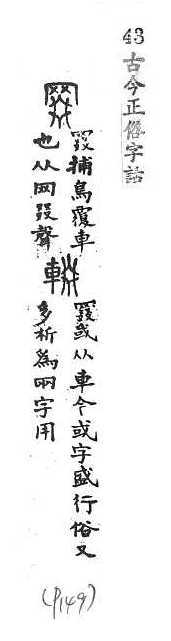 43 古今正俗字詁
罬
罬捕鳥覆車
也从网叕聲
輟
罬或从車今或字盛行俗又
多析為兩字用
(P149)